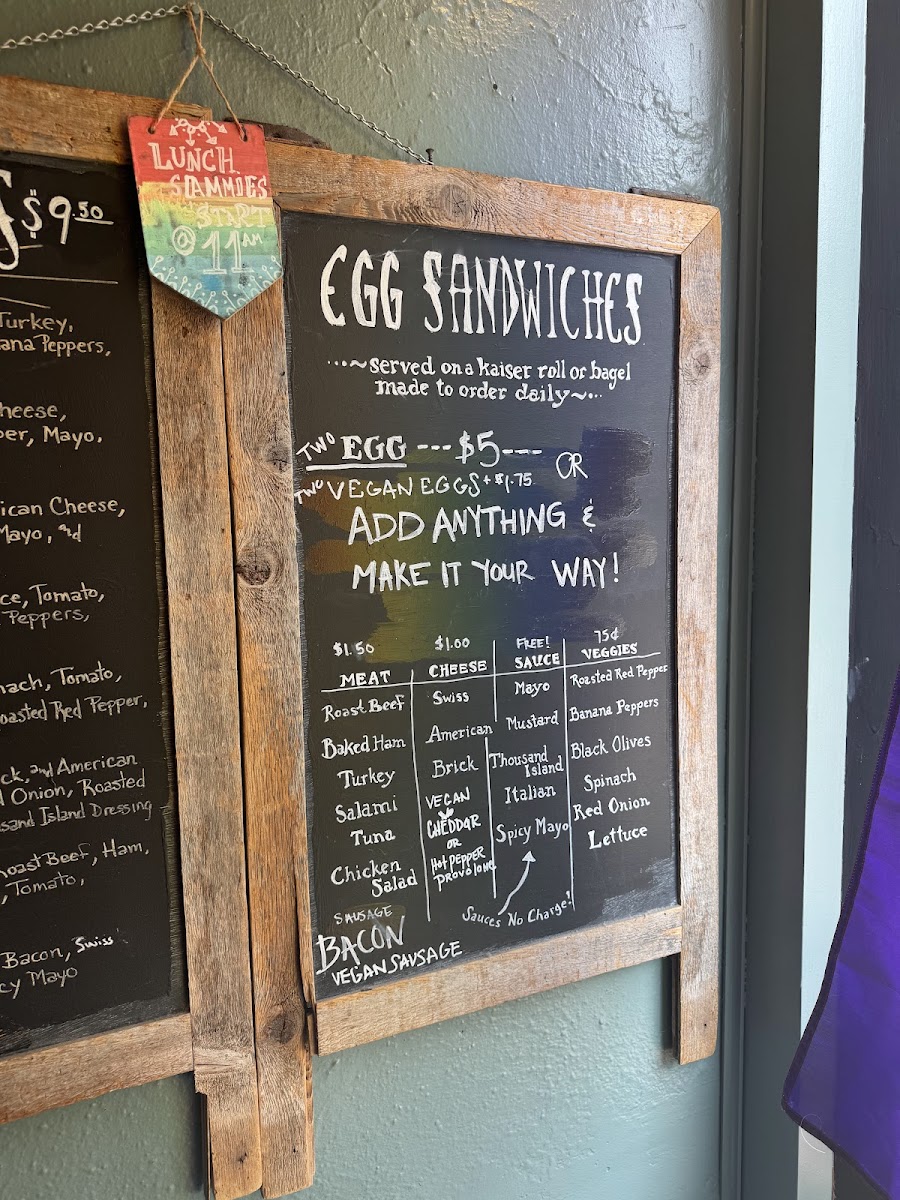 $9.50
Turkey,
Peppers,
Cheese,
Mayo.
American Cheese,
Mayo, and
Tomato,
Peppers,
Tomato,
Roasted Red Pepper,
and American
Onion, Roasted
Island Dressing
Roast Beef, Ham,
, Tomato,
Bacon, Swiss
Mayo
LUNCH
SAMMIES
START
@ 11 AM
EGG SANDWICHES
...~served on a kaiser roll or bagel
made to order daily~...
TWO EGG ---$5--- OR
TWO VEGAN EGGS +$1.75
ADD ANYTHING &
MAKE IT YOUR WAY!
$1.50
MEAT
Roast Beef
Baked Ham
Turkey
Salami
Tuna
Chicken
Salad
SAUSAGE
BACON
VEGAN SAUSAGE
$1.00
CHEESE
Swiss
American
Brick
VEGAN
CHEDDAR
OR
Hot PEPPER
PROVOLONE
FREE!
SAUCE
Mayo
Mustard
Thousand
Island
Italian
Spicy Mayo
Sauces No Charge!
75¢
VEGGIES
Roasted Red Pepper
Banana Peppers
Black Olives
Spinach
Red Onion
Lettuce